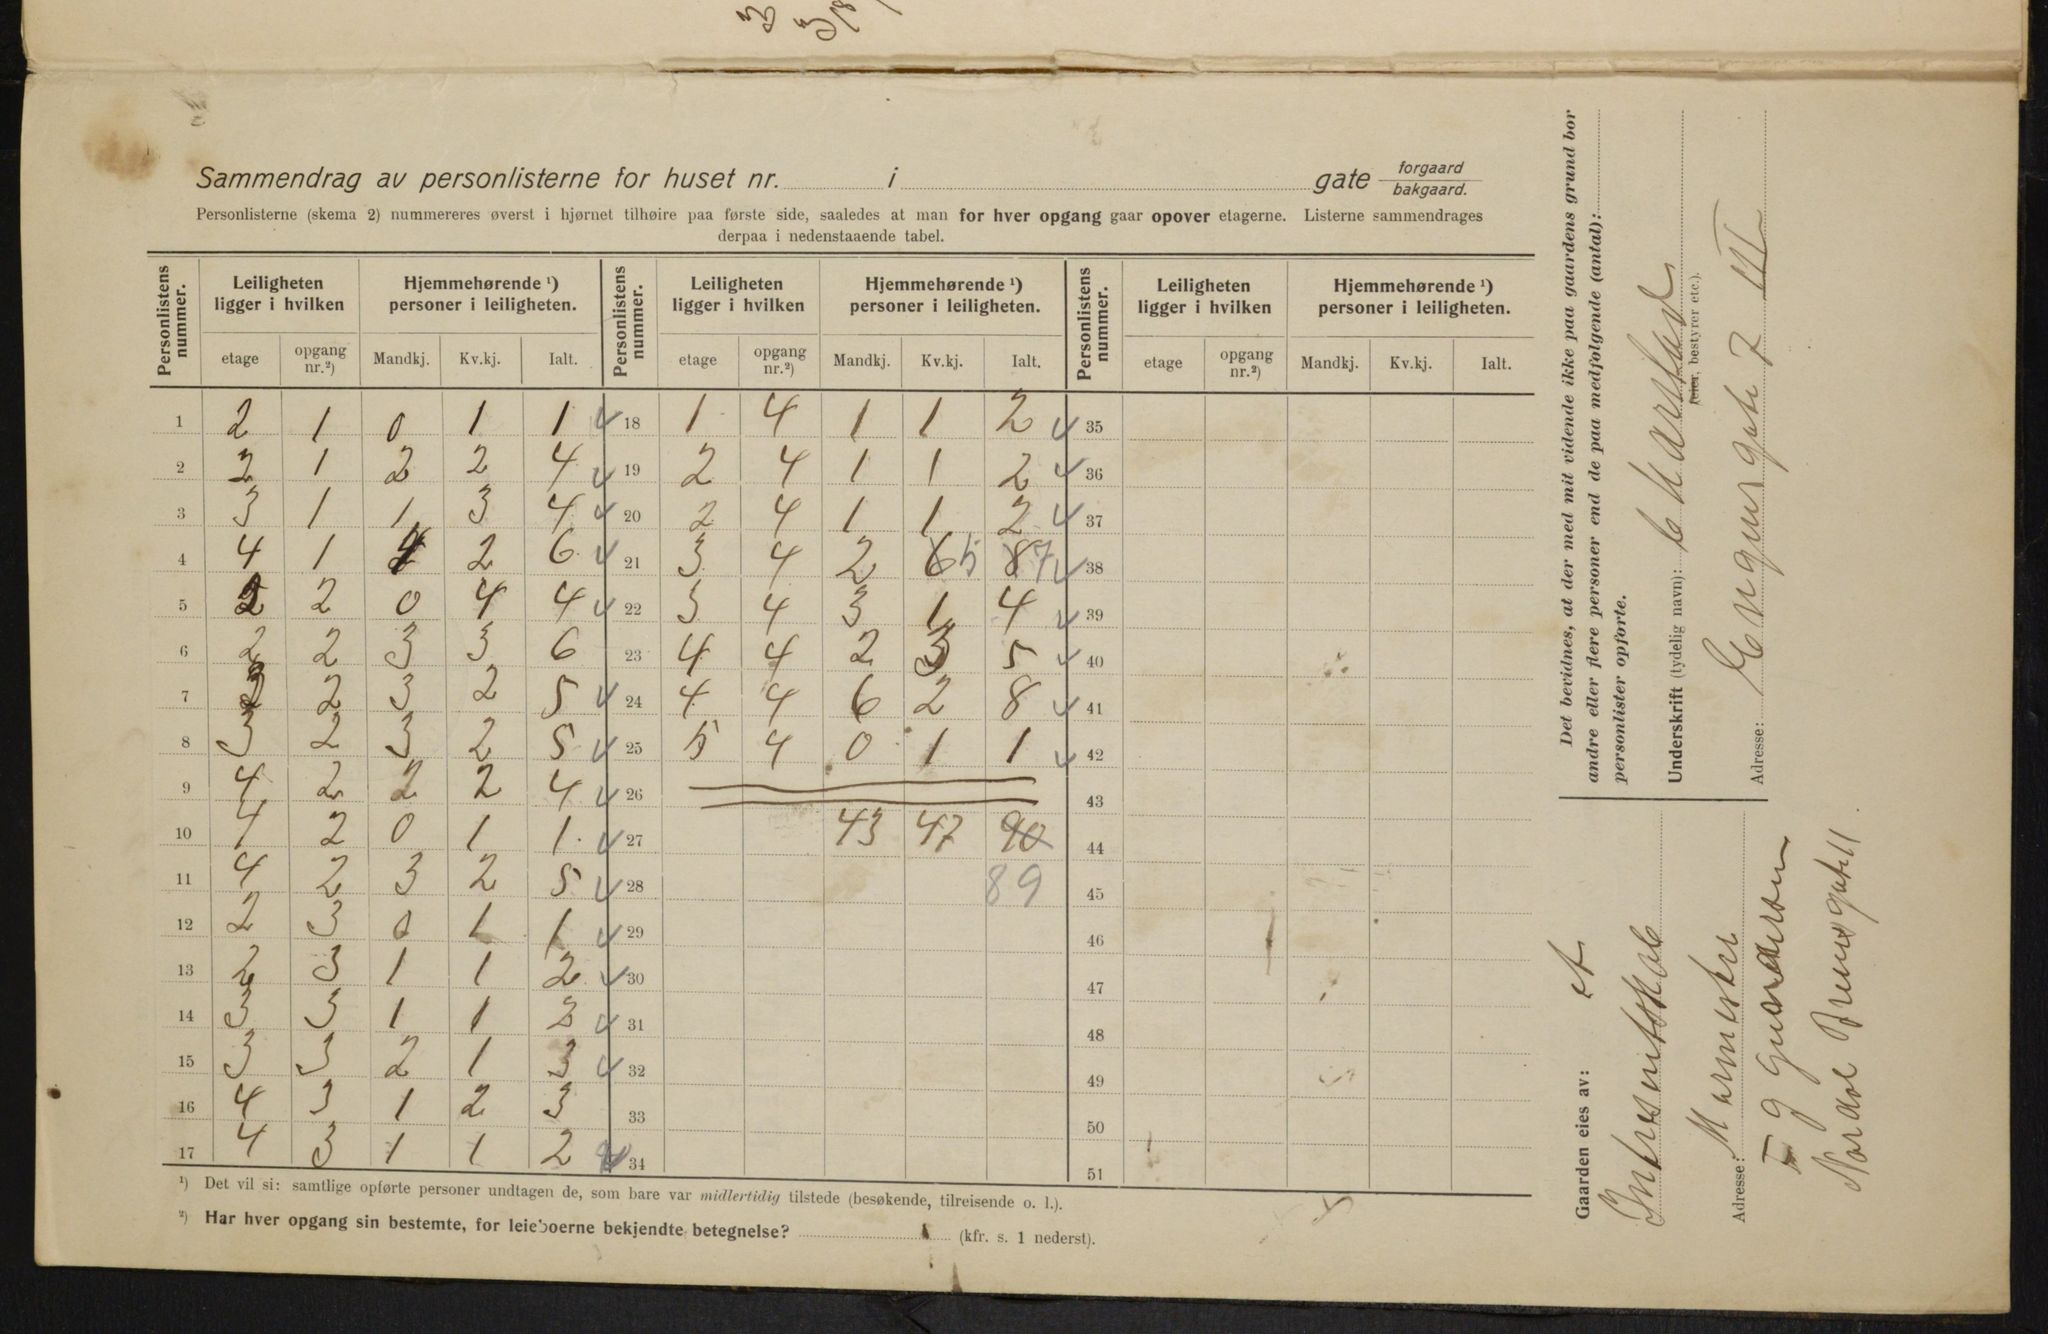 Sammendrag av personlisterne for huset nr. i gate forgaard
bakgaard.
Personlisterne (skema 2) nummereres øverst i hjørnet tilhøire paa første side, saaledes at man for hver opgang gaar opover etagerne. Listerne sammendrages
derpaa i nedenstaaende tabel.
Personlistens nummer. Leiligheten ligger i hvilken Hjemmehørende ¹) personer i leiligheten. Personlistens nummer. Leiligheten ligger i hvilken Hjemmehørende ¹) personer i leiligheten. Personlistens nummer. Leiligheten ligger i hvilken Hjemmehørende ¹) personer i leiligheten.
etage opgang nr.²) Mandkj. Kv.kj. Ialt. etage opgang nr.²) Mandkj. Kv.kj. Ialt. etage opgang nr.²) Mandkj. Kv.kj. Ialt.
1 2 1 0 1 1 18 1 4 1 1 2 35
2 2 1 2 2 4 19 2 4 1 1 2 36
3 3 1 1 3 4 20 2 4 1 1 2 37
4 4 1 4 2 6 21 3 4 2 6 5 8 7 38
5 2 2 0 4 4 22 3 4 3 1 4 39
6 2 2 3 3 6 23 4 4 2 3 5 40
7 3 2 3 2 5 24 4 4 6 2 8 41
8 3 2 3 2 5 25 5 4 0 1 1 42
9 4 2 2 2 4 26 43
10 4 2 0 1 1 27 43 47 90 44
11 4 2 3 2 5 28 89 45
12 2 3 0 1 1 29 46
13 2 3 1 1 2 30 47
14 3 3 1 1 2 31 48
15 3 3 2 1 3 32 49
16 4 3 1 2 3 33 50
17 4 3 1 1 2 34 51
¹) Det vil si: samtlige opførte personer undtagen de, som bare var midlertidig tilstede (besøkende, tilreisende o. l.).
²) Har hver opgang sin bestemte, for leieboerne bekjendte betegnelse? (kfr. s. 1 nederst).
Det bevidnes, at der med mit vidende ikke paa gaardens grund bor
andre eller flere personer end de paa medfølgende (antal):
personlister opførte.
Underskrift (tydelig navn):
feier, bestyrer etc.).
Adresse: 7 III
Gaarden eies av:
Interesentskab
Adresse: